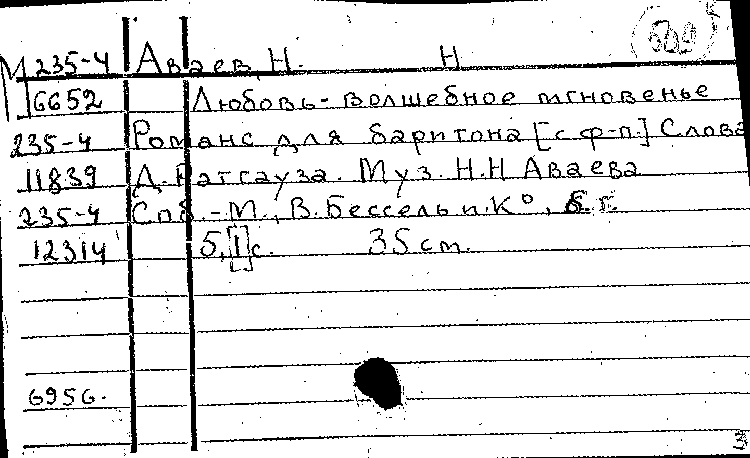 509
М 235-4 Аваев, Н. Н
6652 Любовь - волшебное мгновенье
235-4 Романс для баритона [с ф-п.] Слова
11839 Д. Ратгауза. Муз. Н.Н Аваева
235-4 Спб. - М., В. Бессель и К°, б. г.
12314 5, [1] с. 35 см.
6956.